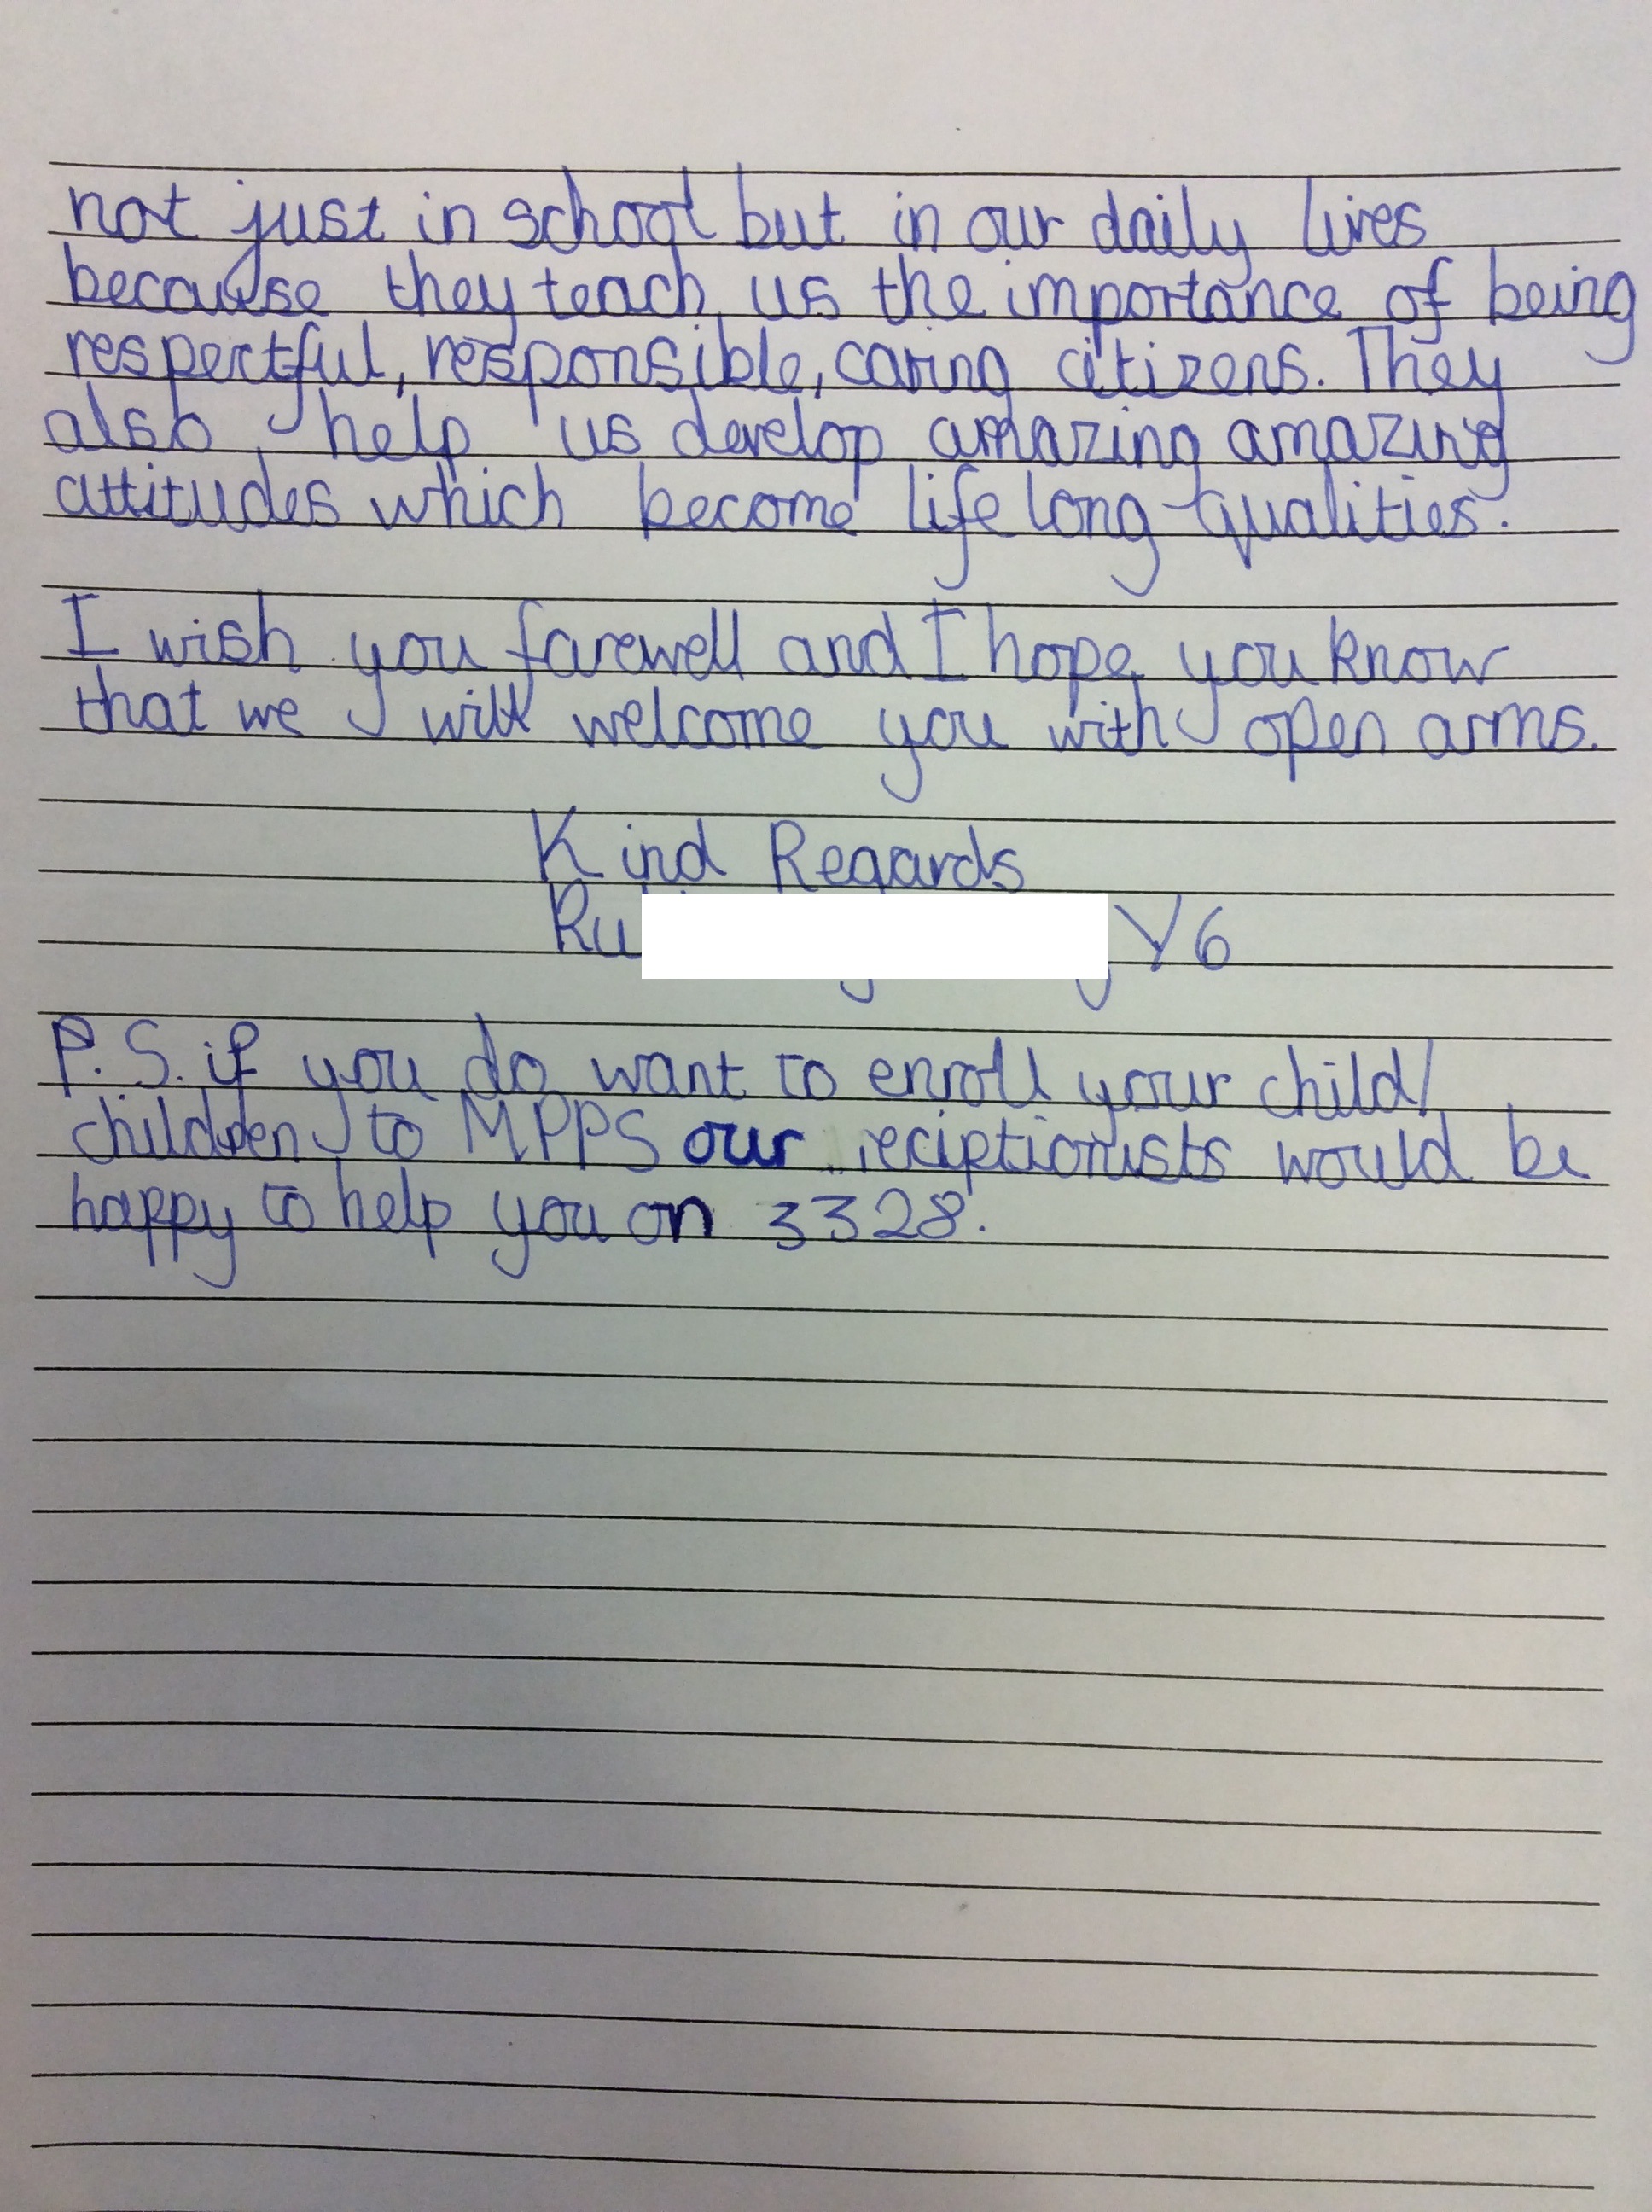 not just in school but in our daily lives
because they teach us the importance of being
respectful, responsible, caring citizens. They
also help us develop amazing amazing
attitudes which become life long qualities.
I wish you farewell and I hope you know
that we will welcome you with open arms.
Kind Regards
Ru Y6
P.S. if you do want to enroll your child/
children to MPPS our reciptionists would be
happy to help you on 3328.